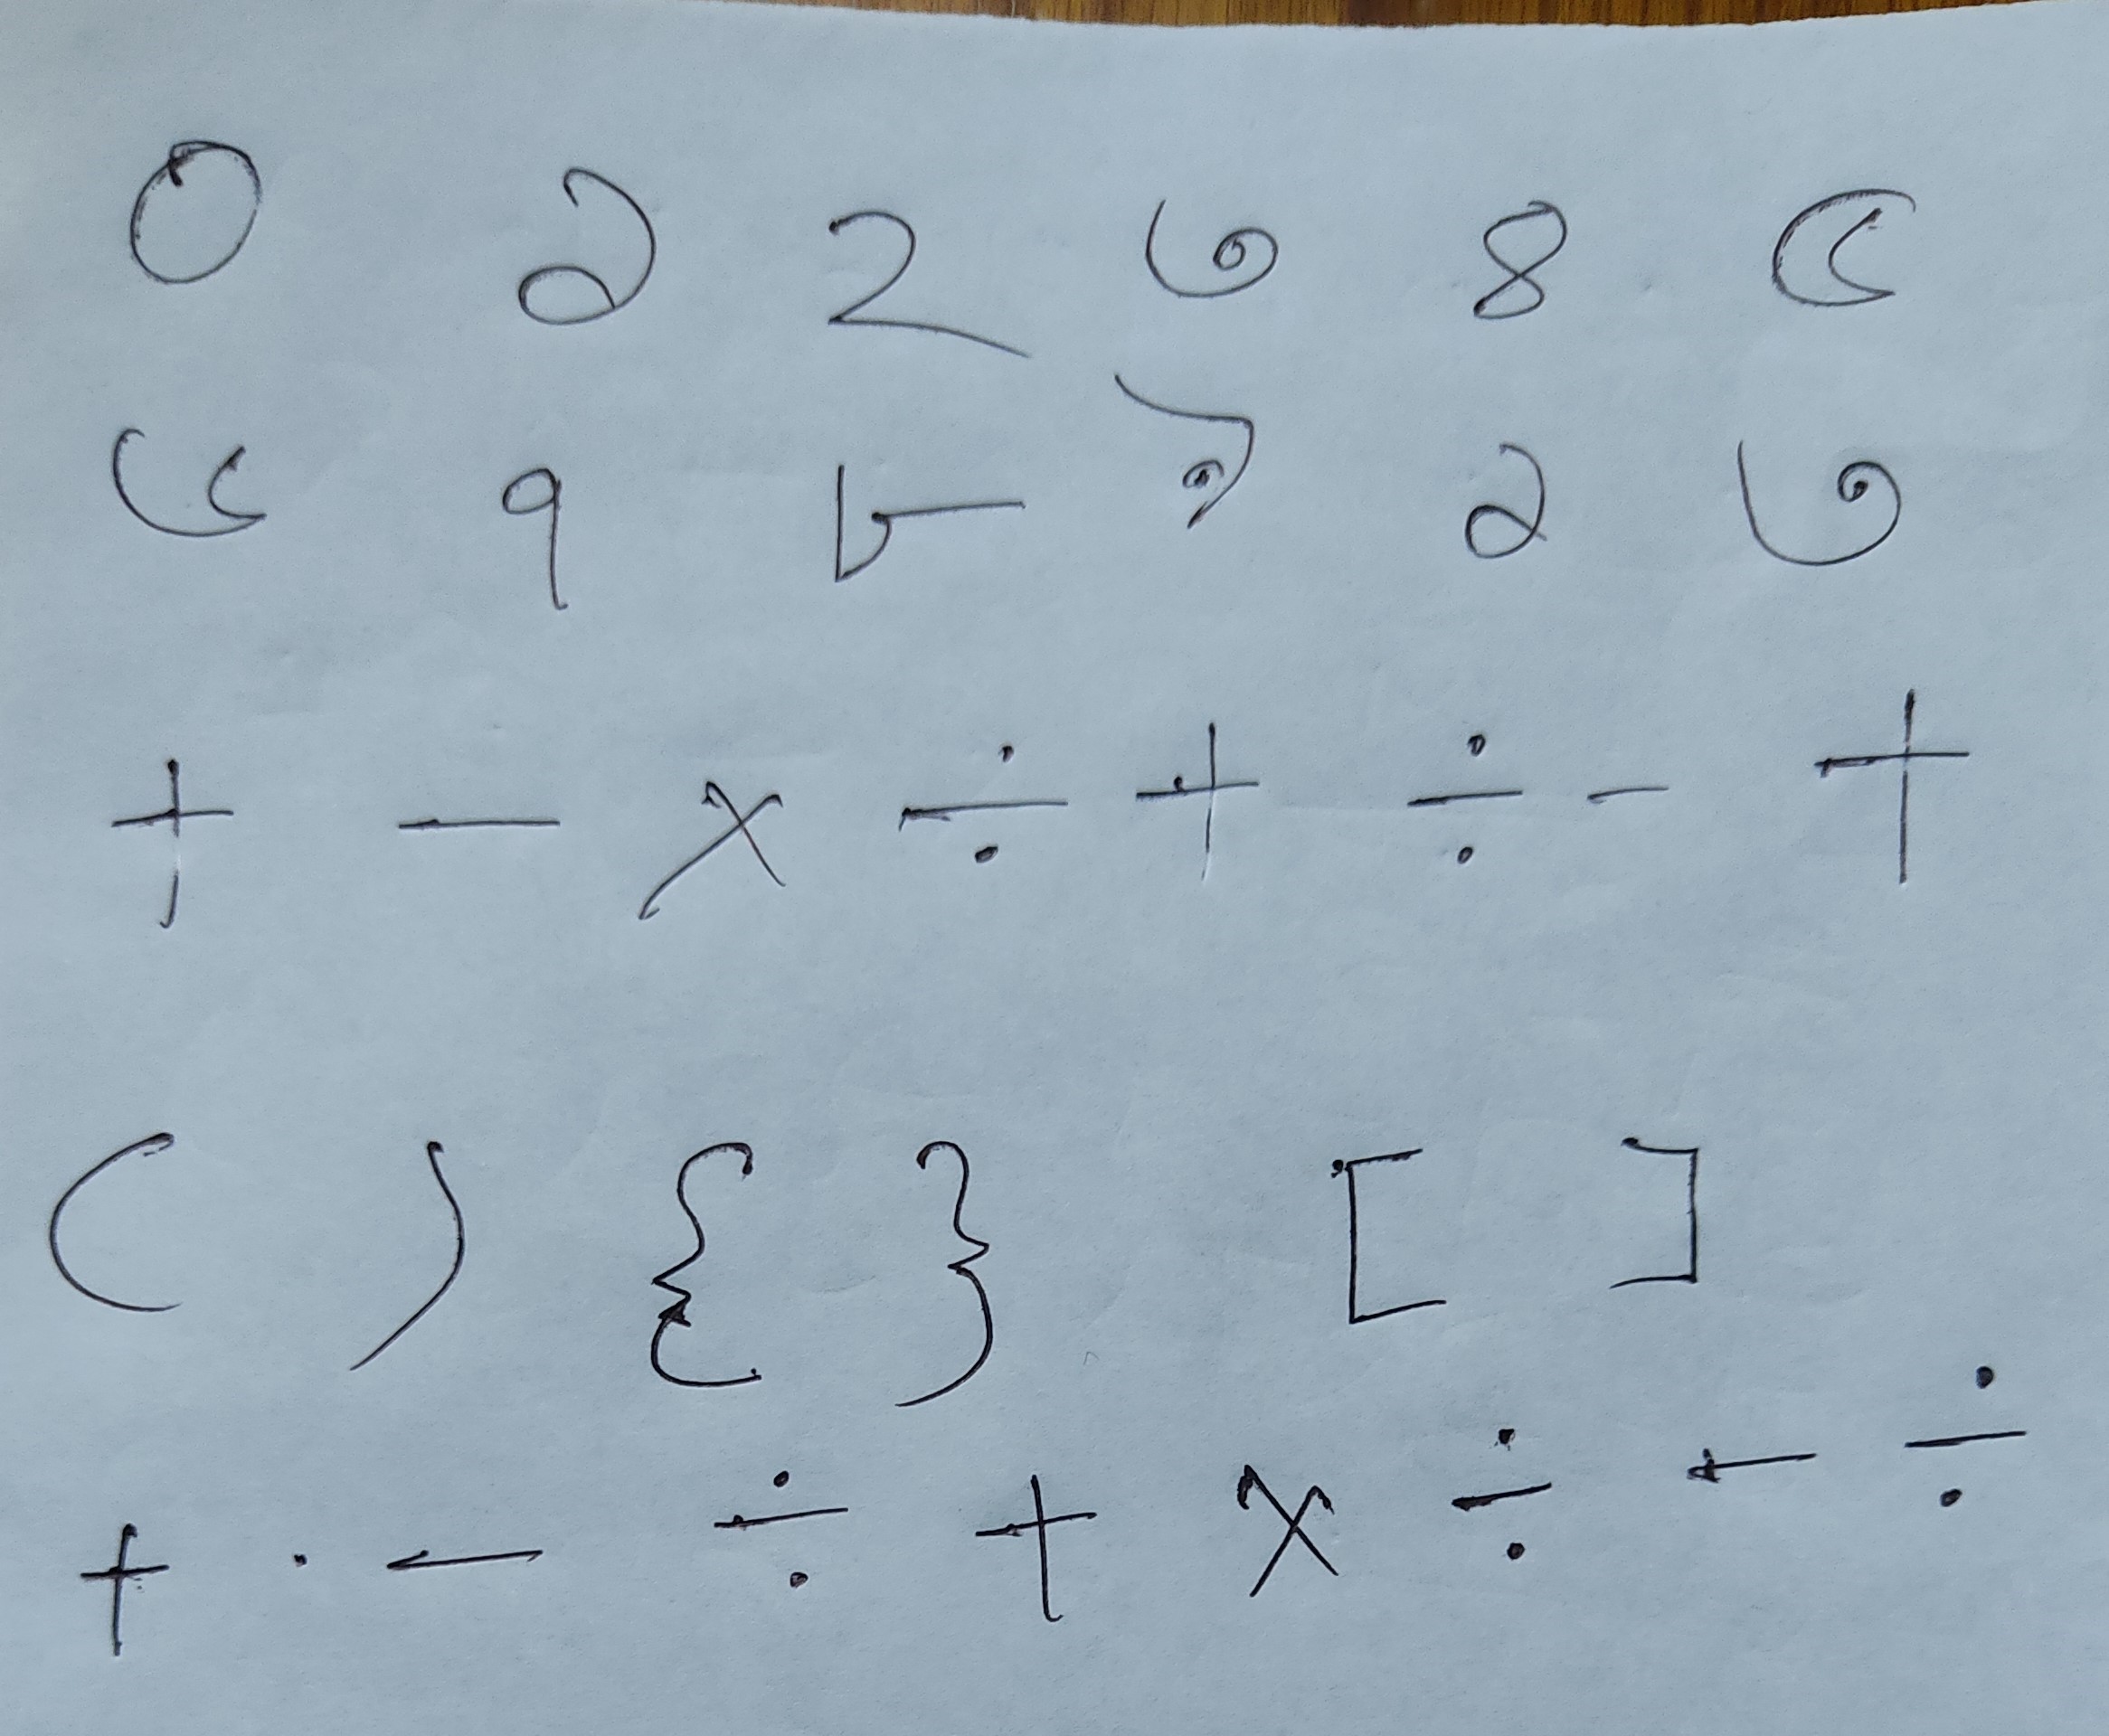 ০ ১ ২ ৩ ৪ ৫
৬ ৭ ৮ ৯ ১ ৩
+ − × ÷ + ÷ − +
( ) { } [ ]
+ · − ÷ + × ÷ − ÷